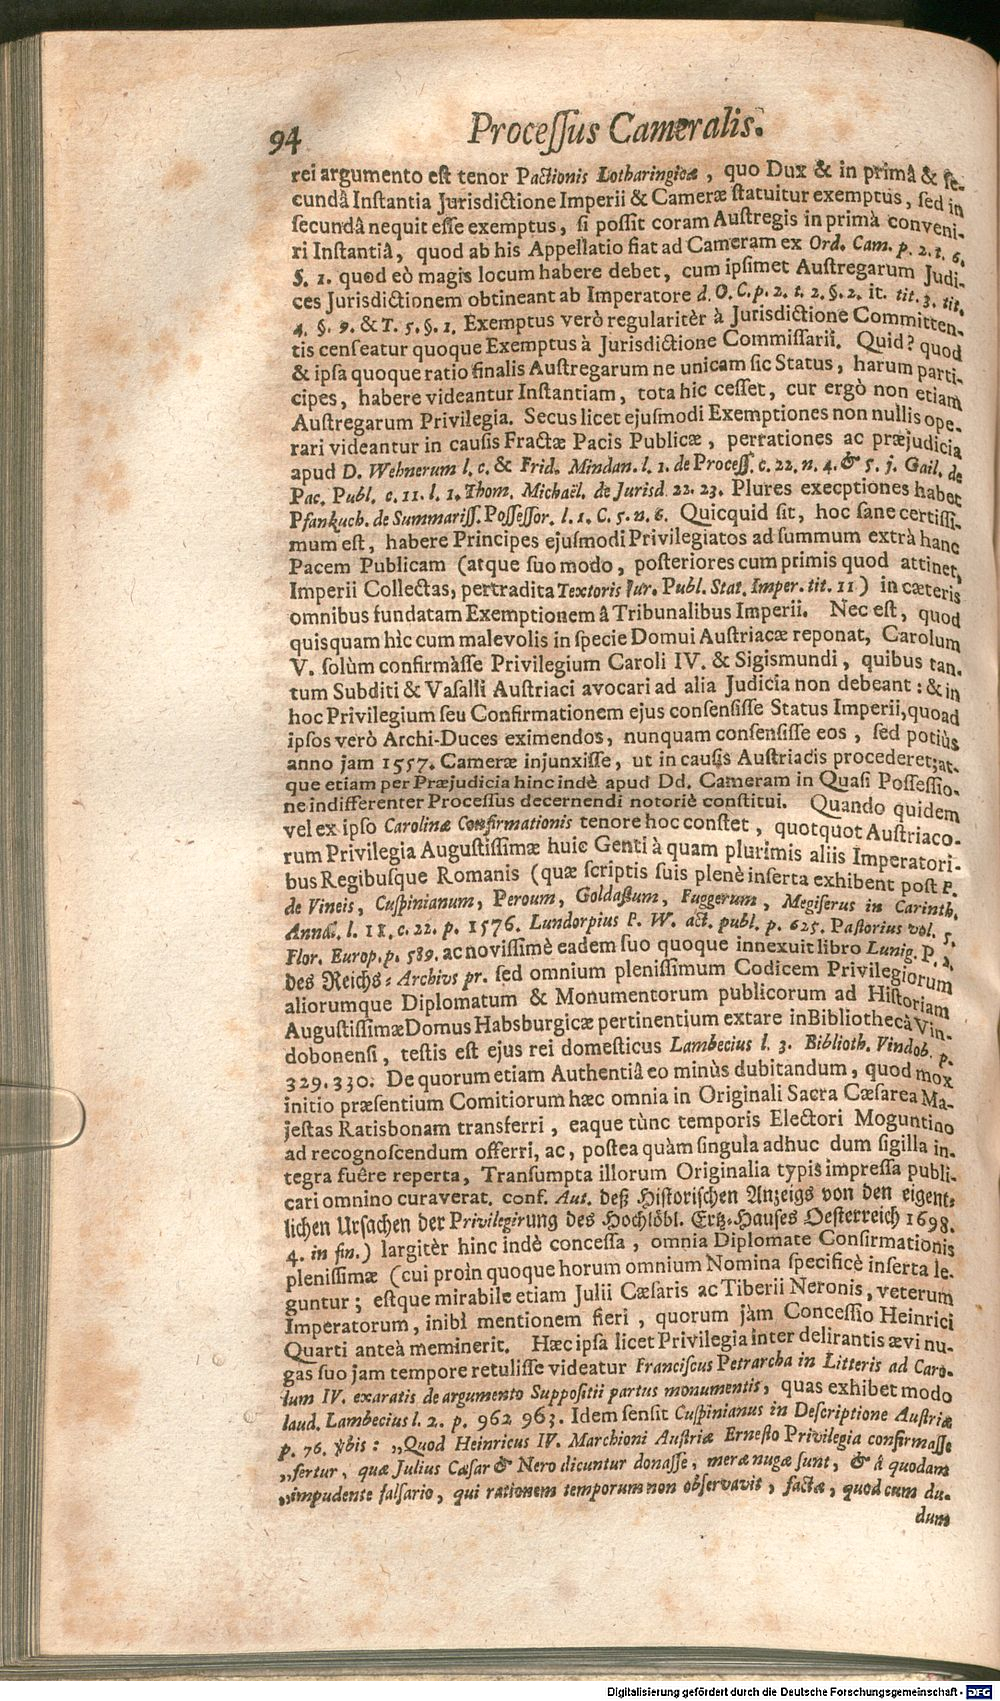 94 Processus Cameralis.
rei argumento est tenor Pactionis Lotharingicæ, quo Dux & in primâ & se-
cundâ Instantia Jurisdictione Imperii & Cameræ statuitur exemptus, sed in
secundâ nequit esse exemptus, si possit coram Austregis in primâ conveni-
ri Instantiâ, quod ab his Appellatio fiat ad Cameram ex Ord. Cam. p. 2. t. 6.
§. 1. quod eò magis locum habere debet, cum ipsimet Austregarum Judi-
ces Jurisdictionem obtineant ab Imperatore d. O. C. p. 2. t. 2. §. 2. it. tit. 3. tit.
4. §. 9. & T. 5. §. 1. Exemptus verò regularitèr à Jurisdictione Committen-
tis censeatur quoque Exemptus à Jurisdictione Commissarii. Quid? quod
& ipsa quoque ratio finalis Austregarum ne unicam sic Status, harum parti-
cipes, habere videantur Instantiam, tota hic cesset, cur ergò non etiam
Austregarum Privilegia. Secus licet ejusmodi Exemptiones non nullis ope-
rari videantur in causis Fractæ Pacis Publicæ, perrationes ac præjudicia
apud D. Wehnerum l. c. & Frid. Mindan. l. 1. de Process. c. 22. n. 4. & 5. j. Gail. de
Pac. Publ. c. 11. l. 1. Thom. Michaël. de Jurisd. 22. 23. Plures execptiones habet
Pfankuch. de Summariss. Possessor. l. 1. C. 5. n. 6. Quicquid sit, hoc sane certissi-
mum est, habere Principes ejusmodi Privilegiatos ad summum extrà hanc
Pacem Publicam (atque suo modo, posteriores cum primis quod attinet,
Imperii Collectas, pertradita Textoris Jur. Publ. Stat. Imper. tit. 11) in cæteris
omnibus fundatam Exemptionem â Tribunalibus Imperii. Nec est, quod
quisquam hìc cum malevolis in specie Domui Austriacæ reponat, Carolum
V. solùm confirmàsse Privilegium Caroli IV. & Sigismundi, quibus tan-
tum Subditi & Vasalli Austriaci avocari ad alia Judicia non debeant: & in
hoc Privilegium seu Confirmationem ejus consensisse Status Imperii, quoad
ipsos verò Archi-Duces eximendos, nunquam consensisse eos, sed potiùs
anno jam 1557. Cameræ injunxisse, ut in causis Austriacis procederet; at-
que etiam per Præjudicia hinc indè apud Dd. Cameram in Quasi Possessio-
ne indifferenter Processus decernendi notoriè constitui. Quando quidem
vel ex ipso Carolinæ Confirmationis tenore hoc constet, quotquot Austriaco-
rum Privilegia Augustissimæ huic Genti à quam plurimis aliis Imperatori-
bus Regibusque Romanis (quæ scriptis suis plenè inserta exhibent post P.
de Vineis, Cuspinianum, Peroum, Goldastum, Fuggerum, Megiserus in Carinth.
Annal. l. 11. c. 22. p. 1576. Lundorpius P. W. act. publ. p. 625. Pastorius vol. 5.
Flor. Europ. p. 589. ac novissimè eadem suo quoque innexuit libro Lunig. P. 2.
des Reichs-Archivs pr. sed omnium plenissimum Codicem Privilegiorum
aliorumque Diplomatum & Monumentorum publicorum ad Historiam
Augustissimæ Domus Habsburgicæ pertinentium extare in Bibliothecà Vin-
dobonensi, testis est ejus rei domesticus Lambecius l. 3. Biblioth. Vindob. p.
329. 330. De quorum etiam Authentiâ eo minùs dubitandum, quod mox
initio præsentium Comitiorum hæc omnia in Originali Sacra Cæsarea Ma-
jestas Ratisbonam transferri, eaque tùnc temporis Electori Moguntino
ad recognoscendum offerri, ac, postea quàm singula adhuc dum sigilla in-
tegra fuêre reperta, Transumpta illorum Originalia typis impressa publi-
cari omnino curaverat. conf. Aut. deß Historischen Anzeigs von den eigent-
lichen Ursachen der Privilegirung des Hochlöbl. Ertz-Hauses Oesterreich 1698.
4. in fin.) largitèr hinc indè concessa, omnia Diplomate Confirmationis
plenissimæ (cui proin quoque horum omnium Nomina specificè inserta le-
guntur; estque mirabile etiam Julii Cæsaris ac Tiberii Neronis, veterum
Imperatorum, inibì mentionem fieri, quorum jàm Concessio Heinrici
Quarti anteà meminerit. Hæc ipsa licet Privilegia inter delirantis ævi nu-
gas suo jam tempore retulisse videatur Franciscus Petrarcha in Litteris ad Caro-
lum IV. exaratis de argumento Suppositii partus monumentis, quas exhibet modo
laud. Lambecius l. 2. p. 962 963. Idem sensit Cuspinianus in Descriptione Austriæ
p. 76. ybis: „Quod Heinricus IV. Marchioni Austriæ Ernesto Privilegia confirmasse
„fertur, quæ Julius Cæsar & Nero dicuntur donasse, meræ nugæ sunt, & â quodam
„impudente falsario, qui rationem temporum non observavit, factæ, quod cum du-
dum
Digitalisierung gefördert durch die Deutsche Forschungsgemeinschaft - DFG